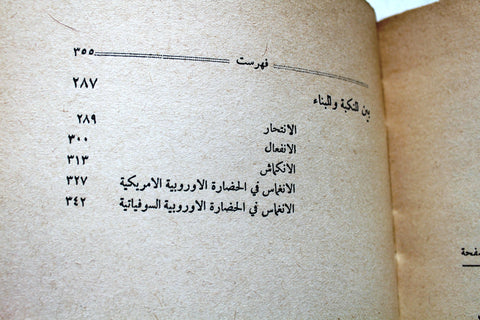 فهرست ٣٥٥
بين النكبة والبناء ٢٨٧
الانتحار ٢٨٩
الانفعال ٣٠٠
الانكماش ٣١٣
الانغماس في الحضارة الاوروبية الامريكية ٣٢٧
الانغماس في الحضارة الاوروبية السوفياتية ٣٤٢
صفحة